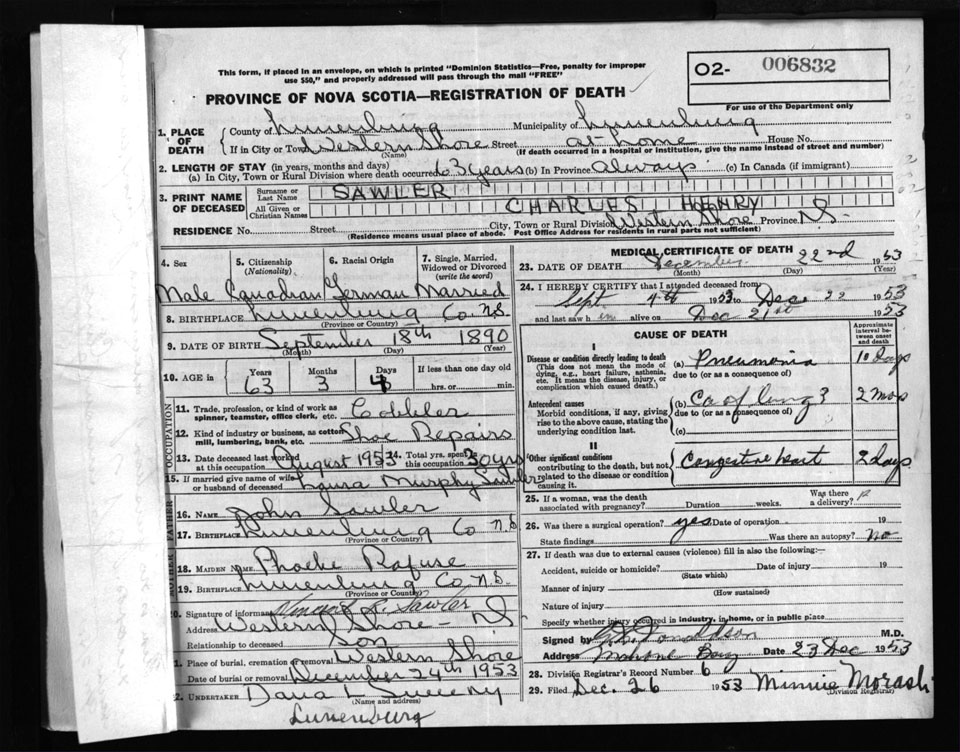 This form, if placed in an envelope, on which is printed "Dominion Statistics—Free, penalty for improper
use $50," and properly addressed will pass through the mail "FREE"
O2- 006832
For use of the Department only
PROVINCE OF NOVA SCOTIA—REGISTRATION OF DEATH
1. PLACE OF DEATH
County of Lunenburg Municipality of Lunenburg
If in City or Town Western Shore Street at home House No.
(Name) (If death occurred in a hospital or institution, give the name instead of street and number)
2. LENGTH OF STAY (in years, months and days)
(a) In City, Town or Rural Division where death occurred 63 years (b) In Province Always (c) In Canada (if immigrant)
3. PRINT NAME OF DECEASED
Surname or Last Name SAWLER
All Given or Christian Names CHARLES HENRY
RESIDENCE No. Street City, Town or Rural Division Western Shore Province N.S.
(Residence means usual place of abode. Post Office Address for residents in rural parts not sufficient)
4. Sex 5. Citizenship (Nationality) 6. Racial Origin 7. Single, Married, Widowed or Divorced (write the word)
Male Canadian German Married
8. BIRTHPLACE Lunenburg Co. N.S.
(Province or Country)
9. DATE OF BIRTH September 18th 1890
(Month) (Day) (Year)
10. AGE in Years Months Days If less than one day old
63 3 4 hrs. or min.
OCCUPATION
11. Trade, profession, or kind of work as spinner, teamster, office clerk, etc. Cobbler
12. Kind of industry or business, as cotton mill, lumbering, bank, etc. Shoe Repairs
13. Date deceased last worked at this occupation August 1953 14. Total yrs. spent this occupation 30 yrs
15. If married give name of wife or husband of deceased Laura Murphy Sawler
FATHER
16. NAME John Sawler
17. BIRTHPLACE Lunenburg Co N.S
(Province or Country)
MOTHER
18. MAIDEN NAME Phoebe Rafuse
19. BIRTHPLACE Lunenburg Co. N.S.
(Province or Country)
20. Signature of informant Vincent C. Sawler
Address Western Shore - N.S
Relationship to deceased Son
1. Place of burial, cremation or removal Western Shore
Date of burial or removal December 24th 1953
2. UNDERTAKER Dana L Sweeny
(Name and address)
Lunenburg
MEDICAL CERTIFICATE OF DEATH
23. DATE OF DEATH December 22nd 1953
(Month) (Day) (Year)
24. I HEREBY CERTIFY that I attended deceased from:
Sept 4th 1953 to Dec 22 1953
and last saw him alive on Dec 21st 1953
CAUSE OF DEATH
Approximate interval between onset and death
I
Disease or condition directly leading to death (a) Pneumonia 10 Days
(This does not mean the mode of dying, e.g., heart failure, asthenia, etc. It means the disease, injury, or complication which caused death.)
due to (or as a consequence of)
Antecedent causes (b) Ca of lung? 2 mos
Morbid conditions, if any, giving rise to the above cause, stating the underlying condition last.
due to (or as a consequence of)
(c)
II
Other significant conditions contributing to the death, but not related to the disease or condition causing it.
Congestive heart 2 days
25. If a woman, was the death associated with pregnancy? Duration weeks. Was there a delivery?
26. Was there a surgical operation? yes Date of operation 19
State findings Was there an autopsy? No
27. If death was due to external causes (violence) fill in also the following:—
Accident, suicide or homicide? Date of injury 19
(State which)
Manner of injury
(How sustained)
Nature of injury
Specify whether injury occurred in industry, in home, or in public place
Signed by Donaldson M.D.
Address Mahone Bay Date 23 Dec 1953
28. Division Registrar's Record Number 6
29. Filed Dec. 26 1953 Minnie Morash
(Division Registrar)